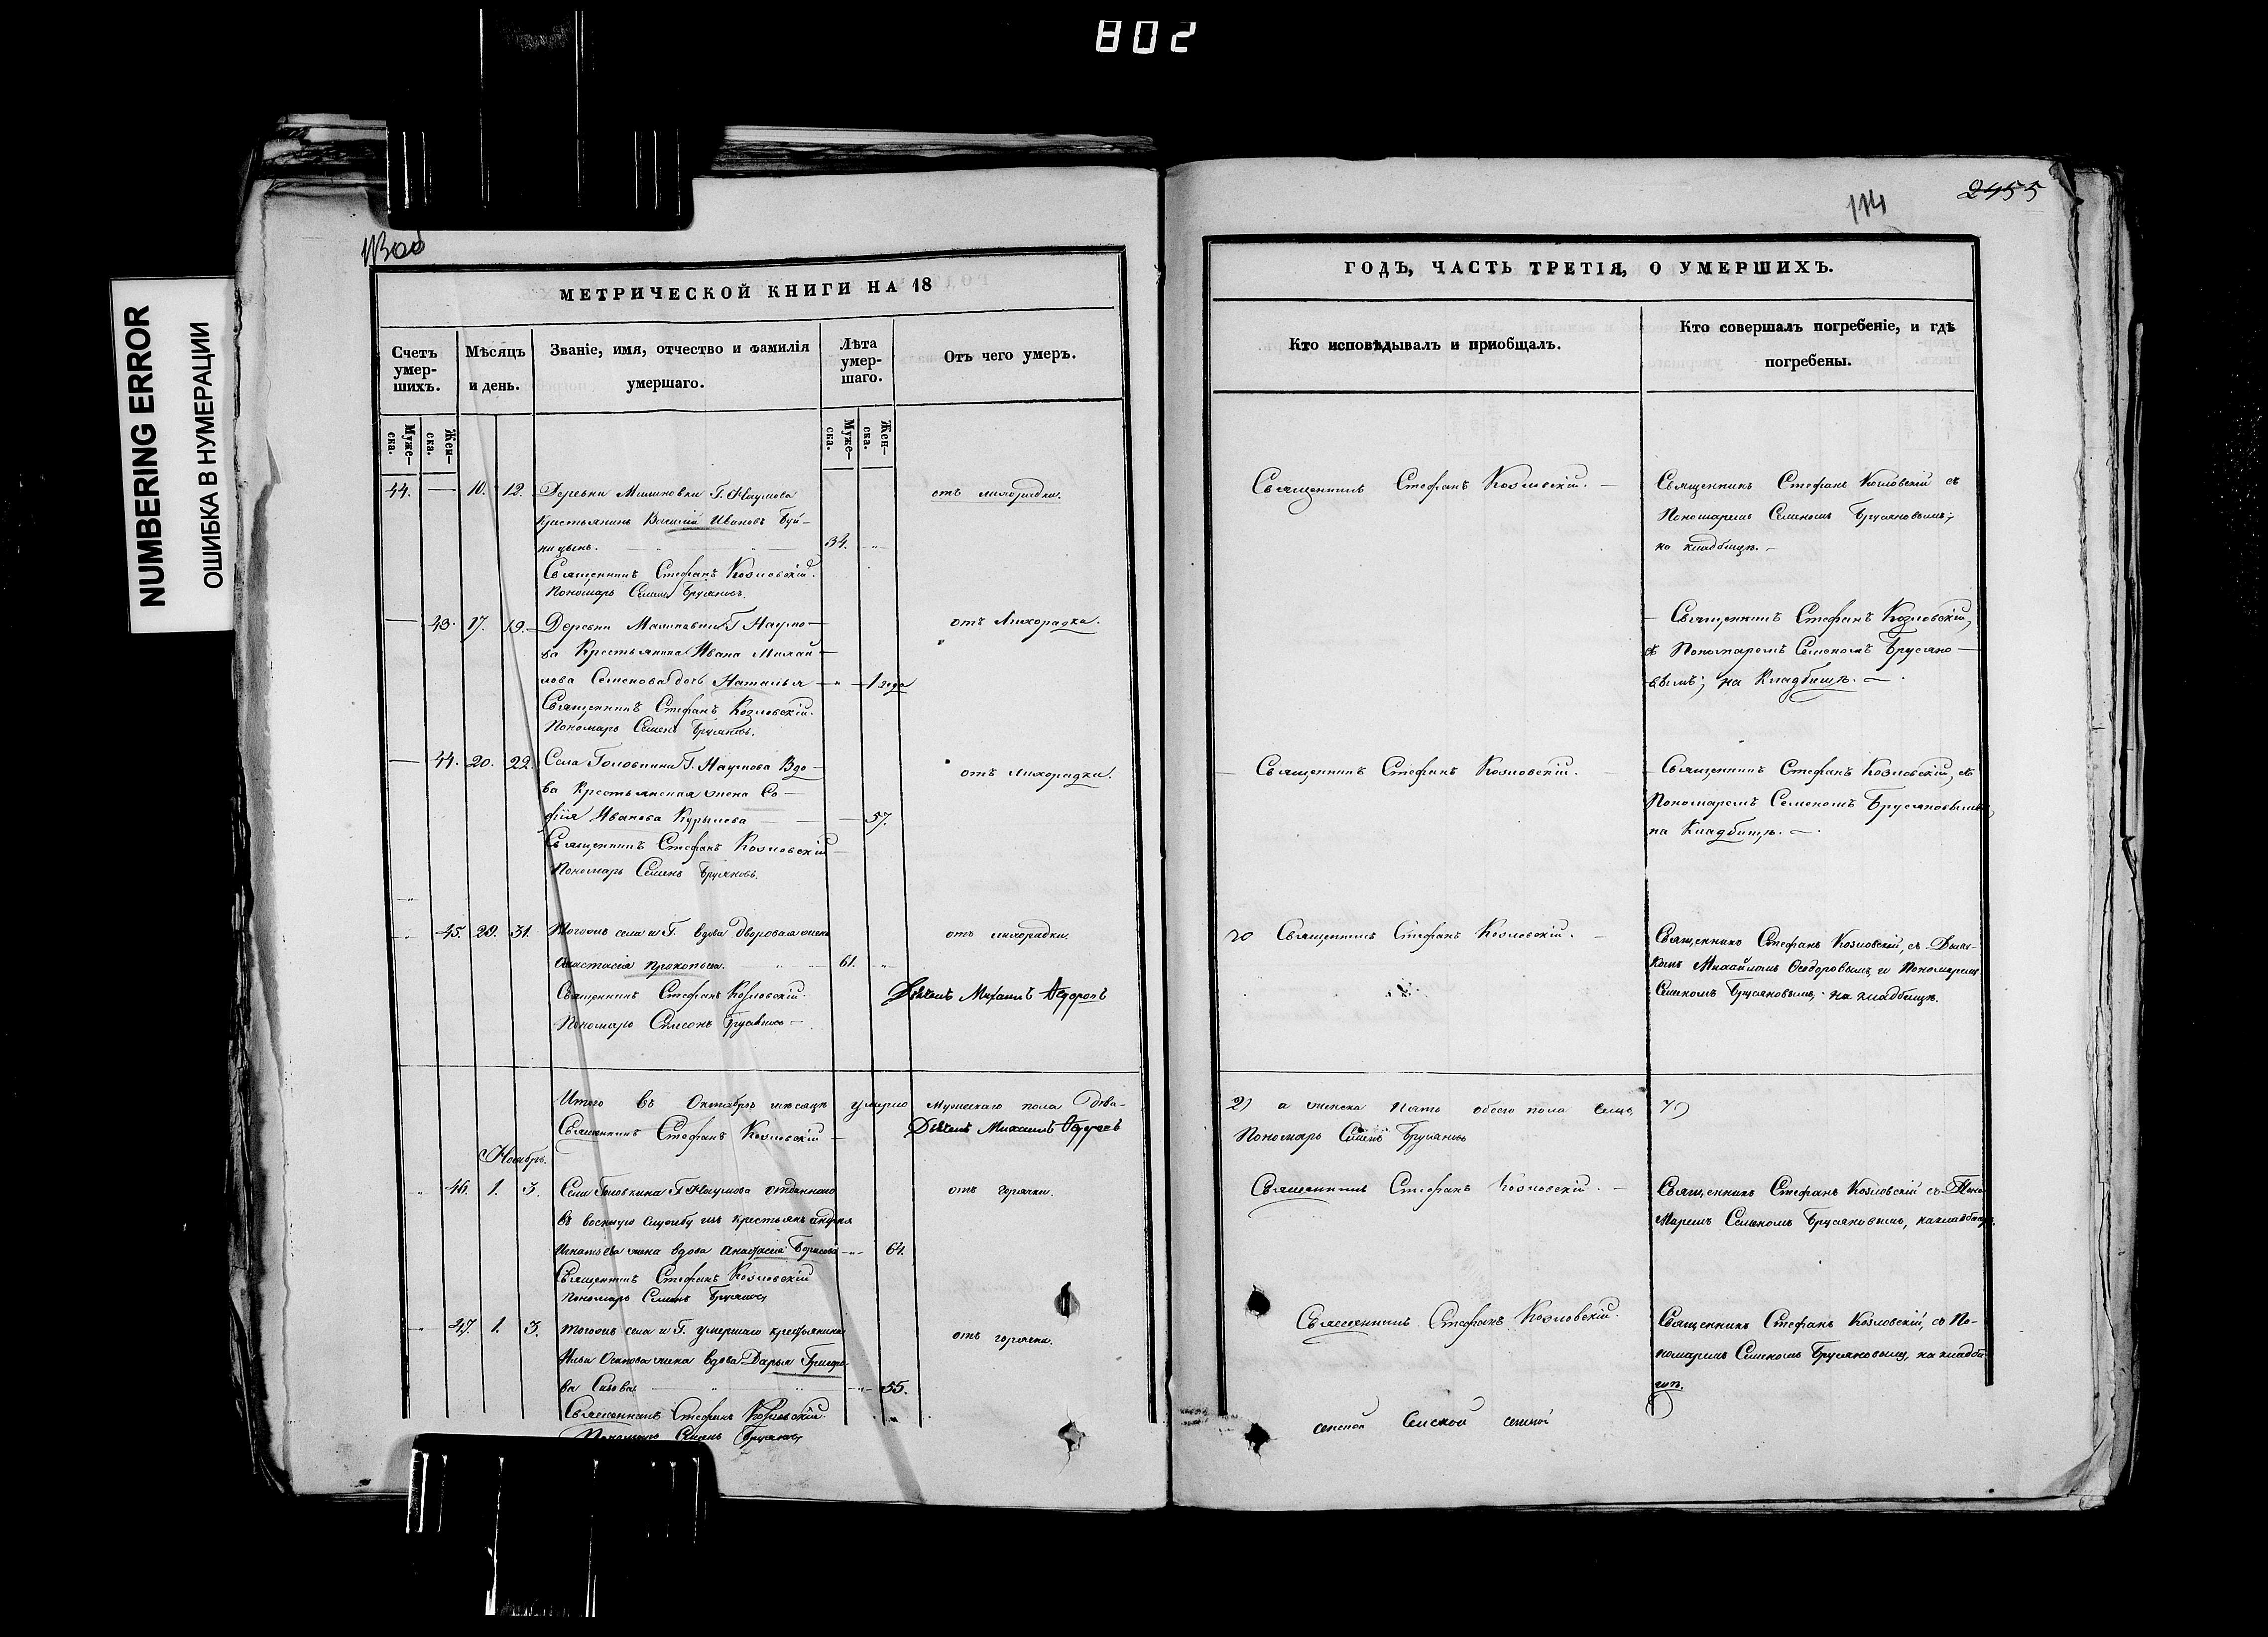 802
NUMBERING ERROR
ОШИБКА В НУМЕРАЦИИ
114
2455
МЕТРИЧЕСКОЙ КНИГИ НА 18
Счетъ умер-шихъ.
Мѣсяцъ и день.
Званіе, имя, отчество и фамилія умершаго.
Лѣта умер-шаго.
Отъ чего умеръ.
Муже-ска.
Жен-ска.
Муже-ска.
Жен-ска.
44. — 10. 12. Деревни Малиновки Г. Наумова
отъ лихорадки.
Крестьянинъ Василій Ивановъ
34.
Священникъ Стефанъ Козловскій.
Пономарь Семенъ Брусяновъ.
— 43. 17. 19. Деревни Малиновки Г Наумо-
отъ Лихорадки.
ва Крестьянина Ивана Михай-
лова Семенова дочь Наталья — 1 года
Священникъ Стефанъ Козловскій.
Пономарь Семенъ Брусяновъ.
— 44. 20. 22. Села Головкина Г. Наумова Вдо-
отъ Лихорадки.
ва Крестьянская жена Со-
фія Иванова Курылева — 57.
Священникъ Стефанъ Козловскій
Пономарь Семенъ Брусяновъ.
45. 29. 31. Тогожъ села и Г. вдова дворовая жена
отъ лихорадки.
Анастасія Прокопьева. 61.
Священникъ Стефанъ Козловскій.
Михаилъ Ѳедоровъ
Пономарь Симеонъ Брусяновъ
Итого въ Октябрѣ мѣсяцѣ умерло мужескаго пола два-
Священникъ Стефанъ Козловскій
Михаилъ Ѳедоровъ
Ноябрь.
46. 1. 3. Села Головкина Г Наумова отданнаго
отъ горячки.
въ военную службу изъ крестьянъ Андрея
Игнатьева жена вдова Анастасія Борисова 64.
Священникъ Стефанъ Козловскій
Пономарь Семенъ Брусяновъ
47. 1. 3. Тогожъ села и Г. умершаго крестьянина
отъ горячки.
Ильи Осипова жена вдова Дарья Григорь-
ва 55.
Священникъ Стефанъ Козловскій.
Пономарь Семенъ Брусяновъ
ГОДЪ, ЧАСТЬ ТРЕТІЯ, О УМЕРШИХЪ.
Кто исповѣдывалъ и пріобщалъ.
Кто совершалъ погребеніе, и гдѣ погребены.
Священникъ Стефанъ Козловскій.
Священникъ Стефанъ Козловскій съ
Пономаремъ Семеномъ Брусяновымъ,
на кладбищѣ.
Священникъ Стефанъ Козловскій,
съ Пономаремъ Семеномъ Брусяно-
вымъ; на Кладбищѣ.
Священникъ Стефанъ Козловскій.
Священникъ Стефанъ Козловскій, съ
Пономаремъ Семеномъ Брусяновымъ,
на Кладбищѣ.
Священникъ Стефанъ Козловскій.
Священникъ Стефанъ Козловскій, съ Дьяч-
комъ Михайломъ Ѳеодоровымъ и Пономаремъ
Семеномъ Брусяновымъ, на кладбищѣ.
2) а женска пять обоего пола семь 7)
Пономарь Семенъ Брусяновъ
Священникъ Стефанъ Козловскій.
Священникъ Стефанъ Козловскій съ Поно-
маремъ Семеномъ Брусяновымъ, на кладбищѣ.
Священникъ Стефанъ Козловскій.
Священникъ Стефанъ Козловскій, съ По-
номаремъ Семеномъ Брусяновымъ, на кладби-
щѣ.